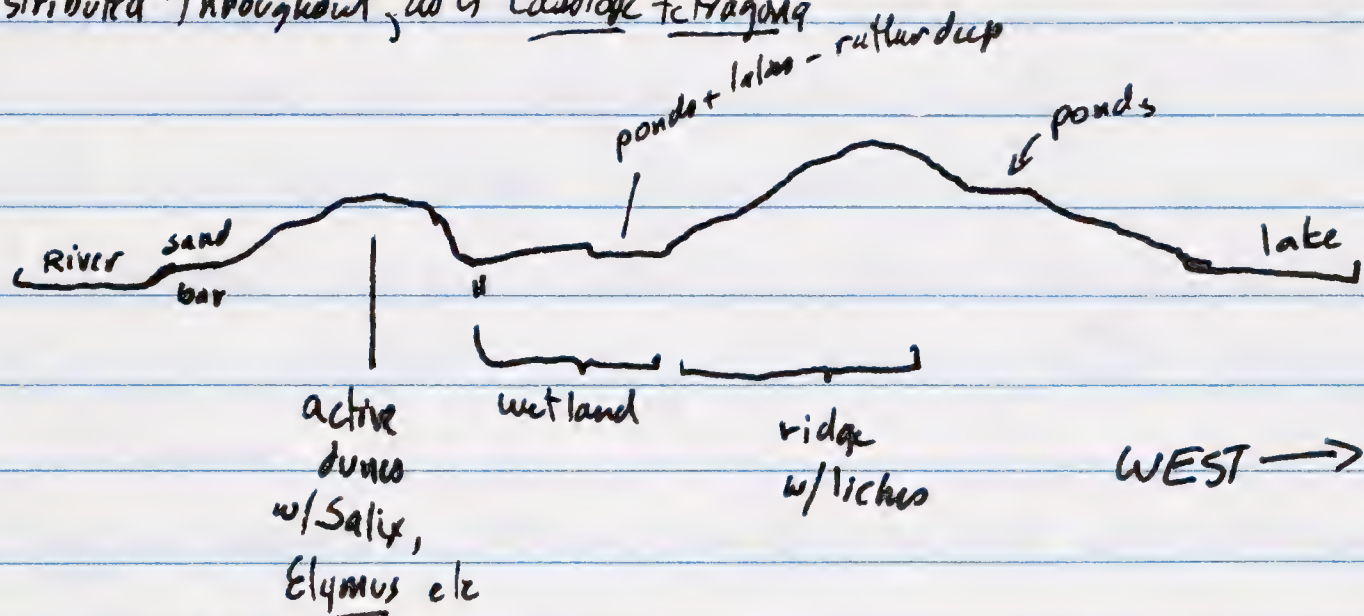 Throughout, as is Cassiope tetragona
ponds + lakes - rather deep
ponds
River
sand
bar
lake
active
dunes
w/Salix,
Elymus etc
wetland
ridge
w/lichens
WEST